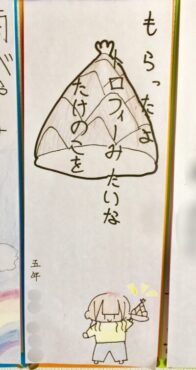 もらったよ
トロフィーみたいな
たけのこを
五年